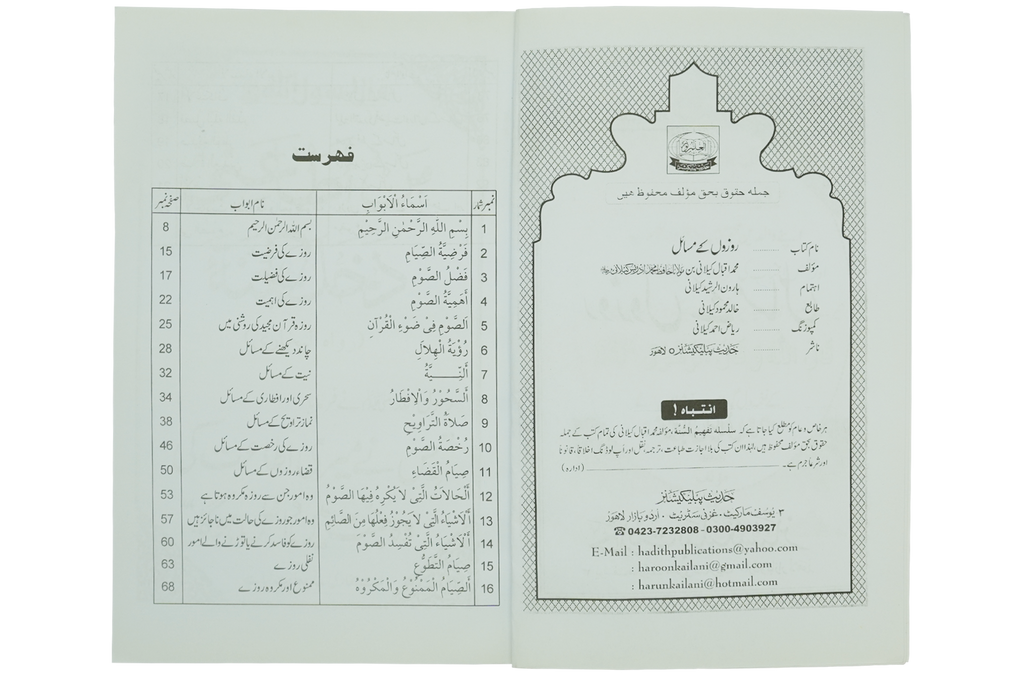 جملہ حقوق بحق مؤلف محفوظ ھیں
نام کتاب ......... روزوں کے مسائل
مؤلف ......... محمد اقبال کیلانی بن مولانا حافظ محمد ادریس کیلانی
اہتمام ......... ہارون الرشید کیلانی
طابع ......... خالد محمود کیلانی
کمپوزنگ ......... ریاض احمد کیلانی
ناشر ......... حدیث پبلیکیشنز لاہور
انتباہ !
ہر خاص و عام کو مطلع کیا جاتا ہے کہ سلسلہ تفہیم السُّنہ ، مؤلفہ محمد اقبال کیلانی کی تمام کتب کے جملہ
حقوق بحق مؤلف محفوظ ہیں، لہٰذا ان کتب کی بلا اجازت طباعت، ترجمہ، نقل اور اَپ لوڈنگ اخلاقاً، قانوناً
اور شرعاً جرم ہے۔ (ادارہ)
حدیث پبلیکیشنز
۳ یوسف مارکیٹ، غزنی سٹریٹ، اردو بازار لاہور
☎ 0423-7232808 - 0300-4903927
E-Mail : hadithpublications@yahoo.com
: haroonkailani@gmail.com
: harunkailani@hotmail.com
فہرست
نمبر شمار اَسْمَاءُ الْاَبْوَابِ نام ابواب صفحہ نمبر
1 بِسْمِ اللّٰهِ الرَّحْمٰنِ الرَّحِيْمِ بسم اللہ الرحمٰن الرحیم 8
2 فَرْضِيَّةُ الصِّيَامِ روزے کی فرضیت 15
3 فَضْلُ الصَّوْمِ روزے کی فضیلت 17
4 اَهَمِيَّةُ الصَّوْمِ روزے کی اہمیت 22
5 اَلصَّوْمُ فِىْ ضَوْءِ الْقُرْآنِ روزہ قرآن مجید کی روشنی میں 25
6 رُؤْيَةُ الْهِلَالِ چاند دیکھنے کے مسائل 28
7 اَلنِّـــــيَّةُ نیت کے مسائل 32
8 اَلسَّحُوْرُ وَالْاِفْطَارُ سحری اور افطاری کے مسائل 34
9 صَلَاةُ التَّرَاوِيْحِ نماز تراویح کے مسائل 38
10 رُخْصَةُ الصَّوْمِ روزے کی رخصت کے مسائل 46
11 صِيَامُ الْقَضَاءِ قضاء روزوں کے مسائل 50
12 اَلْحَالَاتُ الَّتِىْ لَا يُكْرَهُ فِيْهَا الصَّوْمُ وہ امور جن سے روزہ مکروہ ہوتا ہے 53
13 اَلْاَشْيَاءُ الَّتِىْ لَا يَجُوْزُ فِعْلُهَا مِنَ الصَّائِمِ وہ امور جو روزے کی حالت میں ناجائز ہیں 57
14 اَلْاَشْيَاءُ الَّتِىْ تُفْسِدُ الصَّوْمَ روزے کو فاسد کرنے یا توڑنے والے امور 60
15 صِيَامُ التَّطَوُّعِ نفلی روزے 63
16 اَلصِّيَامُ الْمَمْنُوْعُ وَالْمَكْرُوْهُ ممنوع اور مکروہ روزے 68